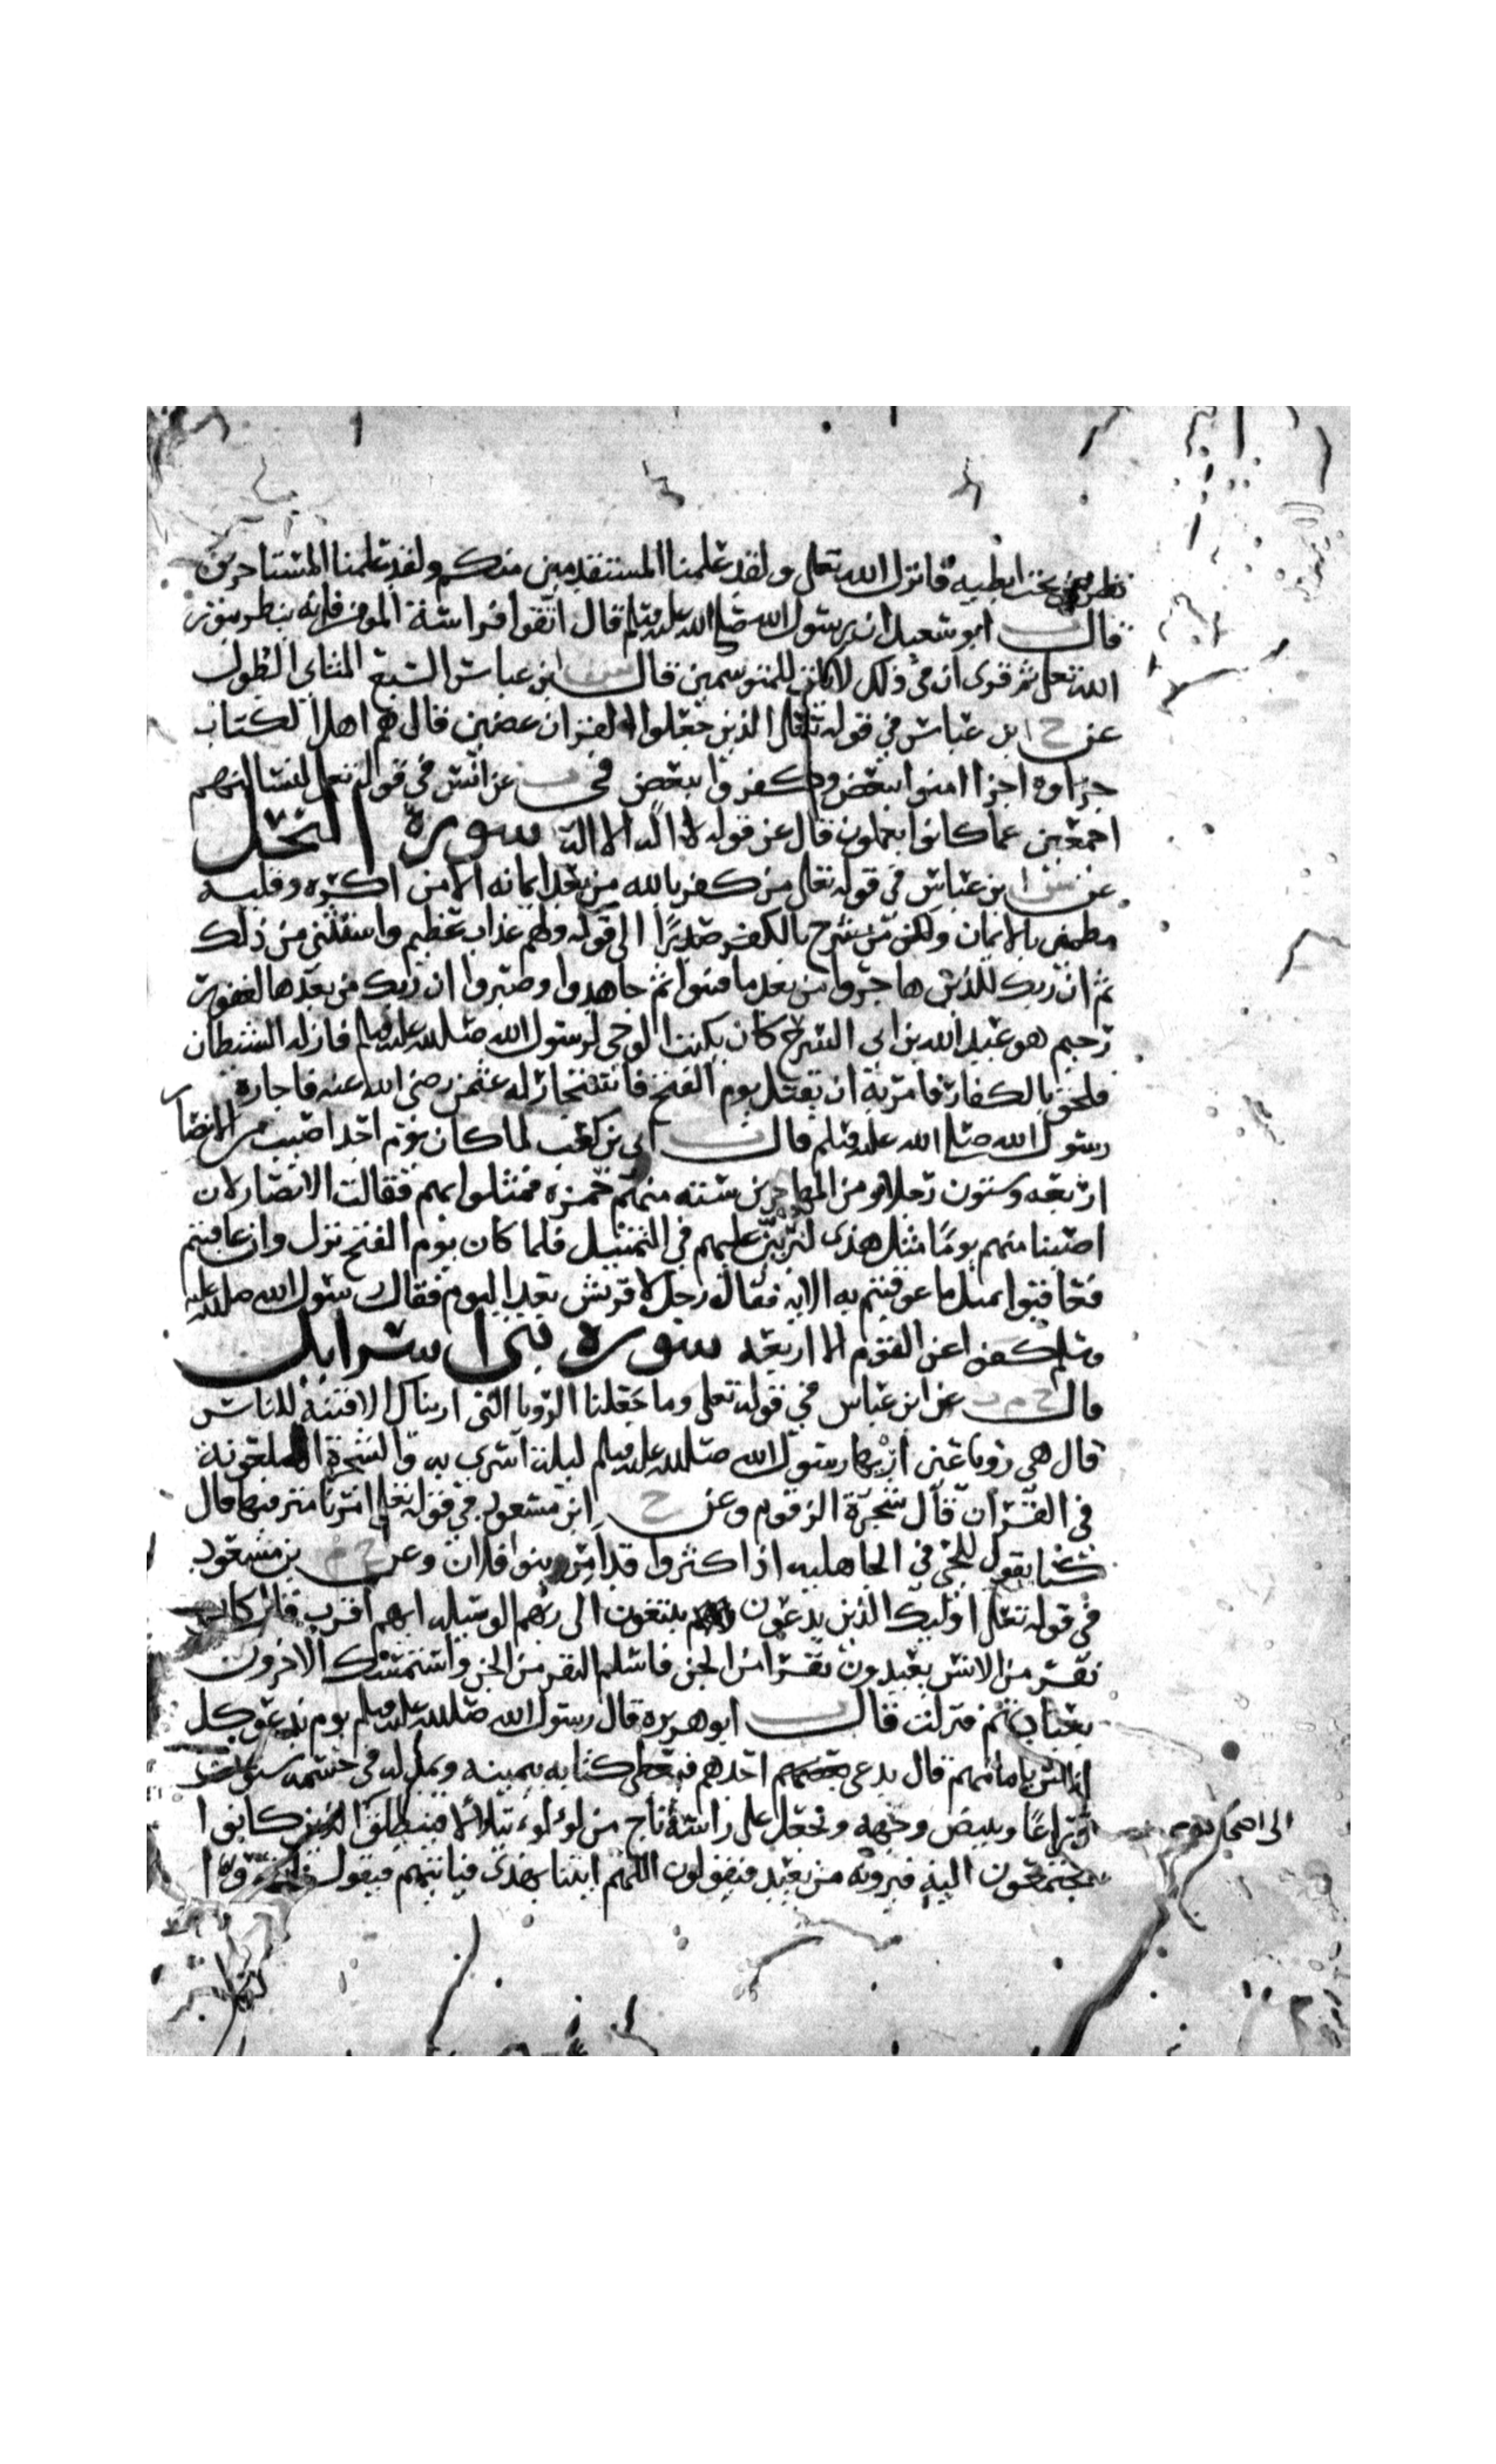 نظر من تحت ابطيه فانزل الله تعلى ولقد علمنا المستقدمين منكم ولقد علمنا المستاخرين
قال ت ابو سعيد ان رسول الله صلى الله عليه وسلم قال اتقوا فراسة المومن فانه ينظر بنور
الله تعلى ثم قرى ان في ذلك لايات للمتوسمين قال ابن عباس السبع المثاني الطول
عن خ ابن عباس في قوله تعلى الذين جعلوا القران عضين قال هم اهل الكتاب
جزاوه اجزا امنوا ببعض وكفروا ببعض ت عن انس في قوله تعلى لنسالنهم
اجمعين عما كانوا يعملون قال عن قوله لا اله الا الله سورة النحل
عن س ابن عباس في قوله تعلى من كفر بالله من بعد ايمانه الا من اكره وقلبه
مطمين بالايمان ولكن من شرح بالكفر صدرًا الى قوله ولهم عذاب عظيم واستثنى من ذلك
ثم ان ربك للذين هاجروا من بعد ما فتنوا ثم جاهدوا وصبروا ان ربك من بعدها لغفور
رحيم هو عبد الله بن ابي السرح كان يكتب الوحي لرسول الله صلى الله عليه وسلم فازله الشيطان
فلحق بالكفار فامر به ان يقتل يوم الفتح فاستجار له عثمن رضي الله عنه فاجاره
رسول الله صلى الله عليه وسلم قال ت ابي بن كعب لما كان يوم احد اصيب من الانصار
اربعه وستون رجلا ومن المهاجرين سته منهم حمزه فمثلوا بهم فقالت الانصار لان
اصبنا منهم يومًا مثل هذى لنربين عليهم في التمثيل فلما كان يوم الفتح نزل وان عاقبتم
فعاقبوا بمثل ما عوقبتم به الايه فقال رجل لا قريش بعد اليوم فقال رسول الله صلى الله عليه
وسلم كفوا عن القوم الا اربعه سوره بني اسرايل
قال خ م ت عن ابن عباس في قوله تعلى وما جعلنا الرويا التي اريناك الا فتنة للناس
قال هي رويا عين اريها رسول الله صلى الله عليه وسلم ليلة اسري به والشجرة الملعونة
في القران قال شجرة الزقوم وعن خ ابن مسعود في قوله تعلى امرنا مترفيها قال
كنا نقول للحي في الجاهليه اذا كثروا قد امر بنوا فلان وعن خ م بن مسعود
في قوله تعلى اوليك الذين يدعون يبتغون الى ربهم الوسيله ايهم اقرب قال كان
نفر من الانس يعبدون نفرًا من الجن فاسلم النفر من الجن واستمسك الاخرون
بعبادتهم فنزلت قال ت ابو هريره قال رسول الله صلى الله عليه وسلم يوم ندعو كل
اناس بامامهم قال يدعى احدهم فيعطى كتابه بيمينه ويمد له في جسمه ستون
ذراعًا ويبيض وجهه ويجعل على راسه تاج من لؤلوء يتلالا فينطلق الى اصحابه الذين كانوا
يجتمعون اليه فيرونه من بعيد فيقولون اللهم ايتنا بهذى فياتيهم فيقول